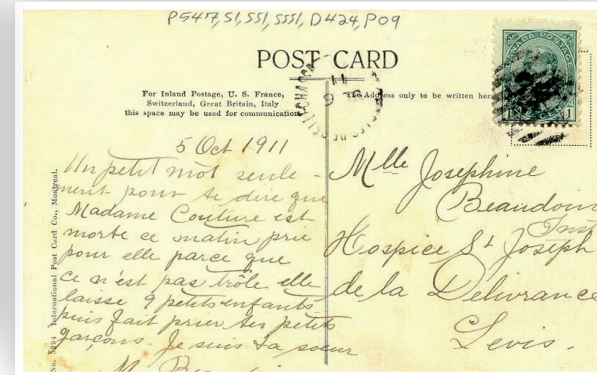 P547, S1, SS1, SSS1, D424, P09
POST CARD
For Inland Postage, U. S. France,
Switzerland, Great Britain, Italy
this space may be used for communication
The Address only to be written her
CANADA POSTAGE
1
11
5 Oct 1911
Un petit mot seule-
ment pour te dire que
Madame Couture est
morte ce matin prie
pour elle parce que
ce n'est pas drôle elle
laisse 9 petits enfants
puis fait prier tes petits
garçons. Je suis ta soeur
Mlle Josephine
Beaudoin
Hospice St Joseph
de la Delivrance
Levis.
International Post Card Co., Montreal.